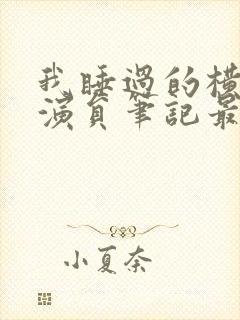 我睡過的橫
演員筆記最
小夏奈